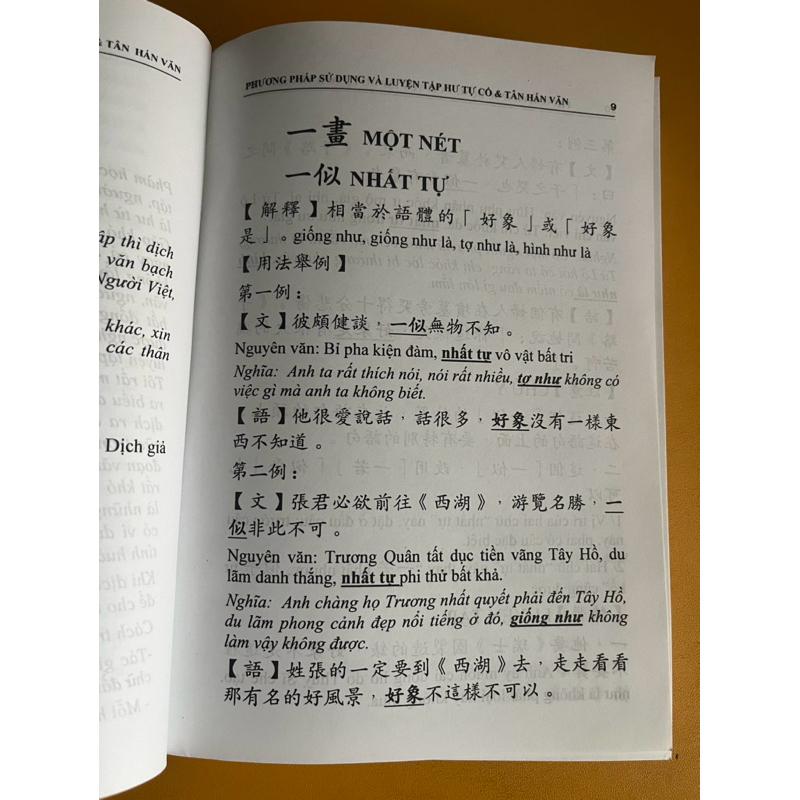 TÂN HÁN VĂN
ập thì dịch
văn bạch
Người Việt,
khác, xin
các thân
Dịch giả
PHƯƠNG PHÁP SỬ DỤNG VÀ LUYỆN TẬP HƯ TỰ CỔ & TÂN HÁN VĂN 9
一畫 MỘT NÉT
一似 NHẤT TỰ
【解釋】相當於語體的「好象」或「好象
是」。giống như, giống như là, tợ như là, hình như là
【用法舉例】
第一例：
【文】彼頗健談，一似無物不知。
Nguyên văn: Bỉ pha kiện đàm, nhất tự vô vật bất tri
Nghĩa: Anh ta rất thích nói, nói rất nhiều, tợ như không có
việc gì mà anh ta không biết.
【語】他很愛說話，話很多，好象沒有一樣東
西不知道。
第二例：
【文】張君必欲前往《西湖》，游覽名勝，一
似非此不可。
Nguyên văn: Trương Quân tất dục tiền vãng Tây Hồ, du
lãm danh thắng, nhất tự phi thử bất khả.
Nghĩa: Anh chàng họ Trương nhất quyết phải đến Tây Hồ,
du lãm phong cảnh đẹp nổi tiếng ở đó, giống như không
làm vậy không được.
【語】姓張的一定要到《西湖》去，走走看看
那有名的好風景，好象不這樣不可以。